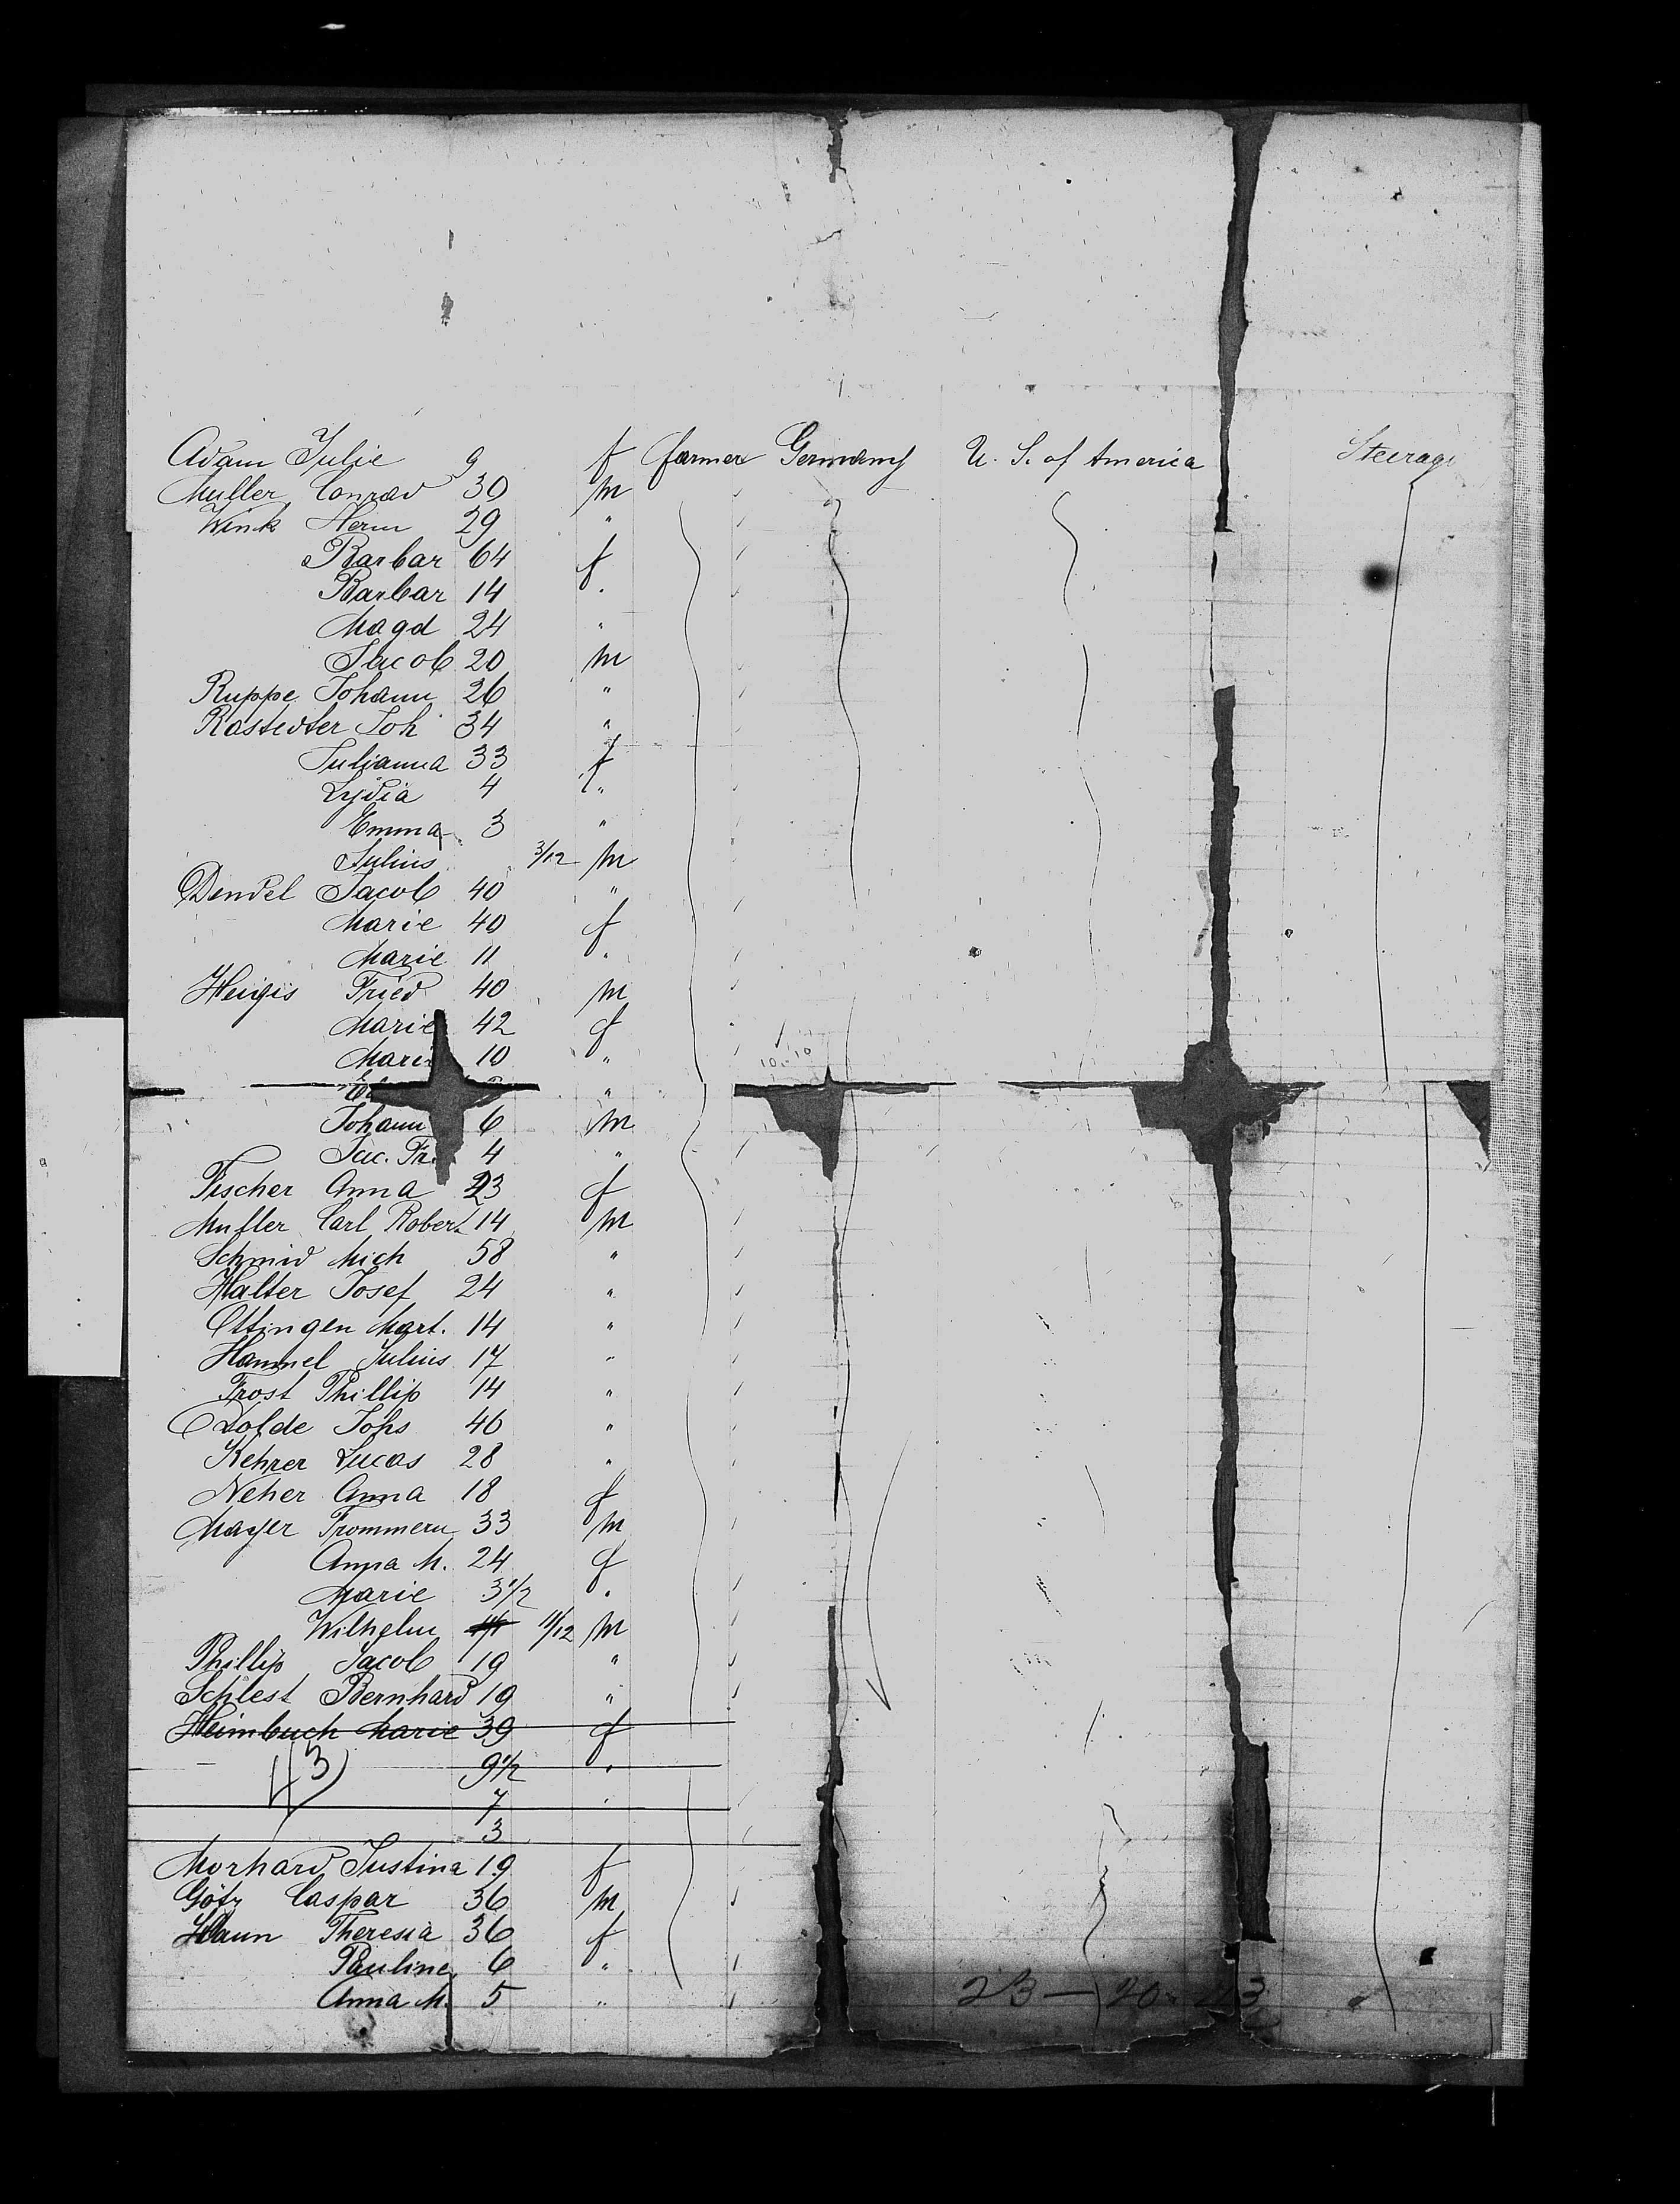 Adam Julie 9 f farmer Germany U. S. of America Steerage
Muller Conrad 30 m
Wink Herm 29 "
Barbar 64 f
Barbar 14 "
Magd 24 "
Jacob 20 m
Ruppe Johann 26 "
Rastedter Joh 34 "
Julianna 33 f
Lydia 4 "
Emma 3 "
Julius 3/12 m
Dendel Jacob 40 "
Marie 40 f
Marie 11 "
Heigis Fried 40 m
Marie 42 f
Marie 10 "
"
Johann 6 m
Jac. Fr. 4 "
Fischer Anna 23 f
Muller Carl Robert 14 m
Schmid Mich 58 "
Halter Josef 24 "
Ottingen Mart. 14 "
Hammel Julius 17 "
Frost Phillip 14 "
Dolde Johs 46 "
Kehrer Lucas 28 "
Neher Anna 18 f
Mayer Frommern 33 m
Anna M. 24 f
Marie 3 1/2 "
Wilhelm 11/12 m
Phillip Jacob 19 "
Schlest Bernhard 19 "
Heimbuch Marie 39 f
9 1/2 "
7 "
3
43
Morhard Justina 19 f
Götz Caspar 36 m
Haun Theresia 36 f
Pauline 6 "
Anna M. 5 "
23 — 20 = 43